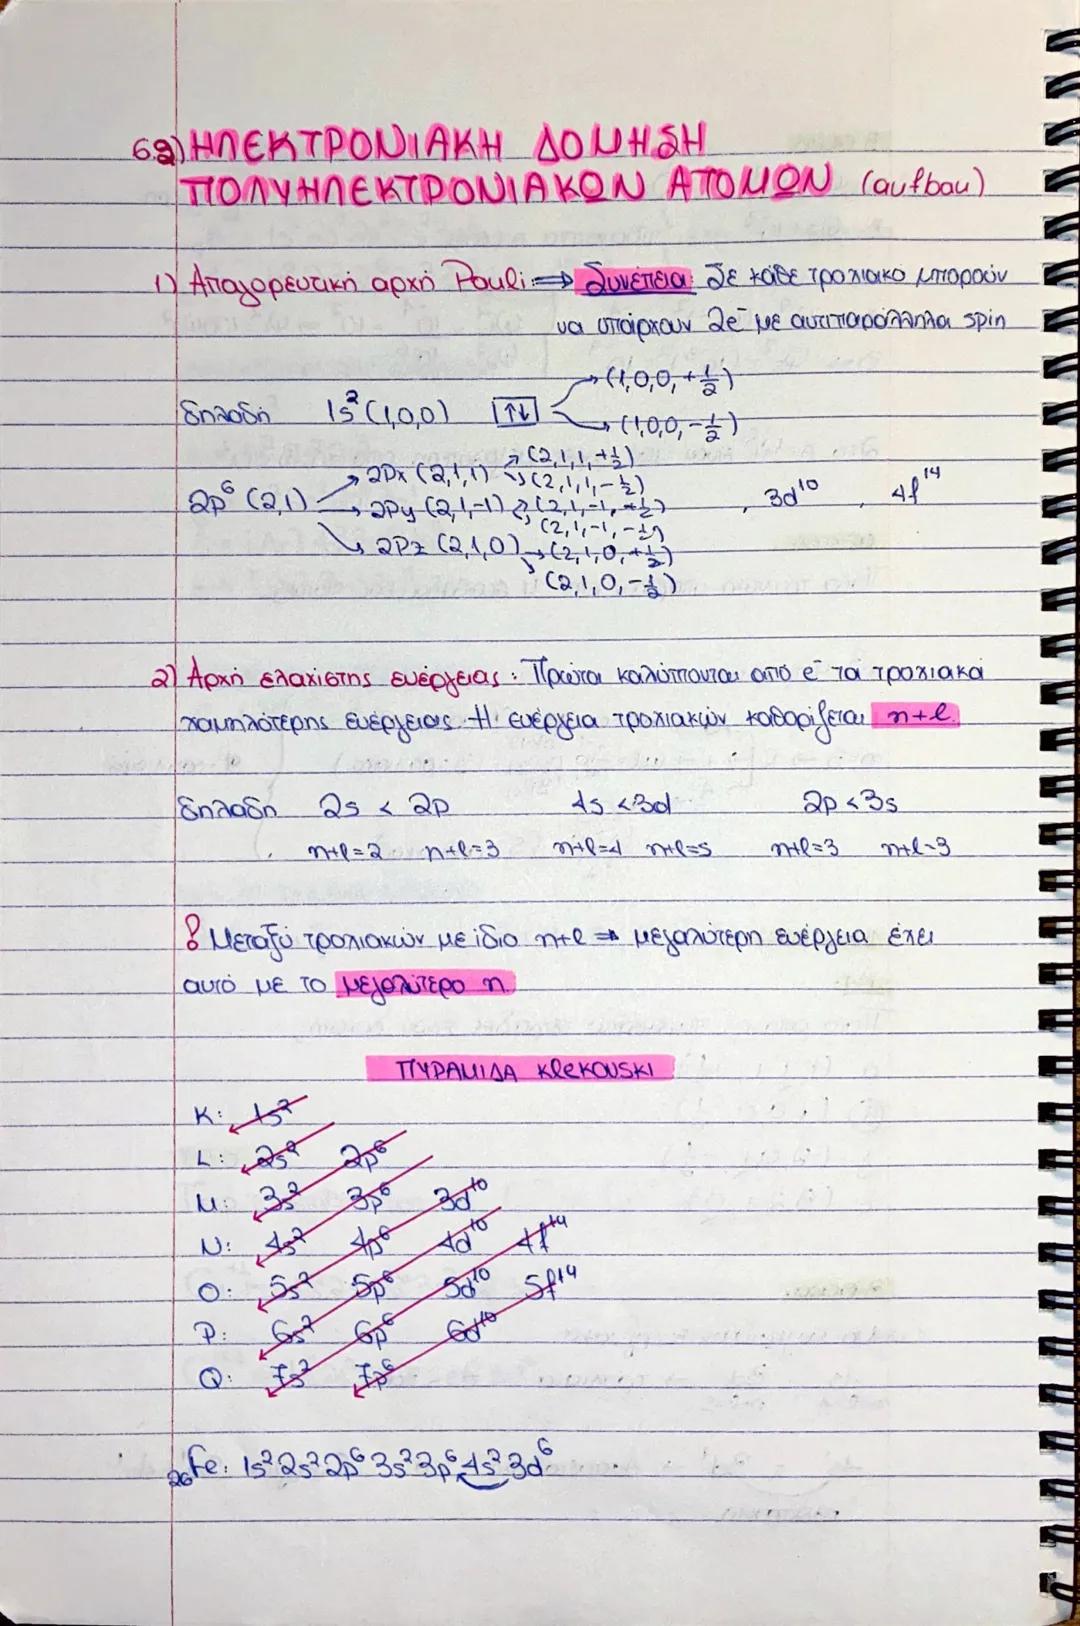 6.2) ΗΛΕΚΤΡΟΝΙΑΚΗ ΔΟΜΗΣΗ
ΠΟΛΥΗΛΕΚΤΡΟΝΙΑΚΩΝ ΑΤΟΜΩΝ (aufbau)
1) Απαγορευτική αρχή Pauli: ⇒ Συνέπεια: Σε κάθε τροχιακό μπορούν
να υπάρχουν 2e⁻ με αντιπαράλληλα spin
→ (1,0,0,+½)
δηλαδή 1s² (1,0,0) [↑↓]
→ (1,0,0,-½)
→ 2Px (2,1,1) → (2,1,1,+½)
→ (2,1,1,-½)
2p⁶ (2,1) → 2Py (2,1,-1) → (2,1,-1,+½) , 3d¹⁰ , 4f¹⁴
(2,1,-1,-½)
→ 2Pz (2,1,0) → (2,1,0,+½)
(2,1,0,-½)
2) Αρχή ελαχίστης ενέργειας: Πρώτα καλύπτονται από e⁻ τα τροχιακά
χαμηλότερης ενέργειας. Η ενέργεια τροχιακών καθορίζεται n+l.
δηλαδή 2s < 2p 4s <3d 2p <3s
n+l=2 n+l=3 n+l=4 n+l=5 n+l=3 n+l=3
! Μεταξύ τροχιακών με ίδιο n+l ⇒ μεγαλύτερη ενέργεια έχει
αυτό με το μεγαλύτερο n.
ΠΥΡΑΜΙΔΑ KleKOVSKI
K: 1s²
L: 2s² 2p⁶
M: 3s² 3p⁶ 3d¹⁰
N: 4s² 4p⁶ 4d¹⁰ 4f¹⁴
O: 5s² 5p⁶ 5d¹⁰ 5f¹⁴
P: 6s² 6p⁶ 6d¹⁰
Q: 7s² 7p⁶
₂₆Fe: 1s² 2s² 2p⁶ 3s² 3p⁶ 4s² 3d⁶